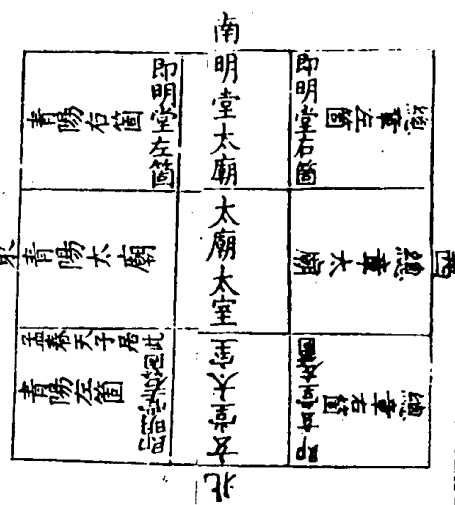 南
即明堂右箇
總章左箇
明堂太廟
即明堂左箇
青陽右箇
西
總章大廟
太廟太室
青陽太廟
東
總章右箇
玄堂大室
孟春天子居此
青陽左箇
北